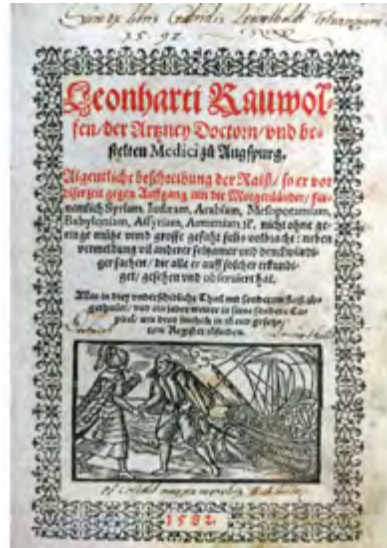 Leonharti Rauwol-
fen/ der Artzney Doctorn/ vnd be-
stelten Medici zů Augspurg.
Aigentliche beschreibung der Raiß/ so er vor
diser zeit gegen Auffgang inn die Morgenländer/ für-
nemlich Syriam, Iudæam, Arabiam, Mesopotamiam,
Babyloniam, Assyriam, Armeniam ꝛc. nicht ohne ge-
ringe mühe vnnd grosse gefahr selbs volbracht: neben
vermeldung vil anderer seltzamer vnd denckwürdi-
ger sachen/ die alle er auff solcher erkundi-
get/ gesehen vnd obseruiert hat.
Alles in drey vnderschidliche Thail mit sonderem fleiß ab-
getheilet/ vnd ein jeder weiter in seine sondere Ca-
pitel/ wie dero innhalt in zů end gesetz-
tem Register zůfinden.
1582.